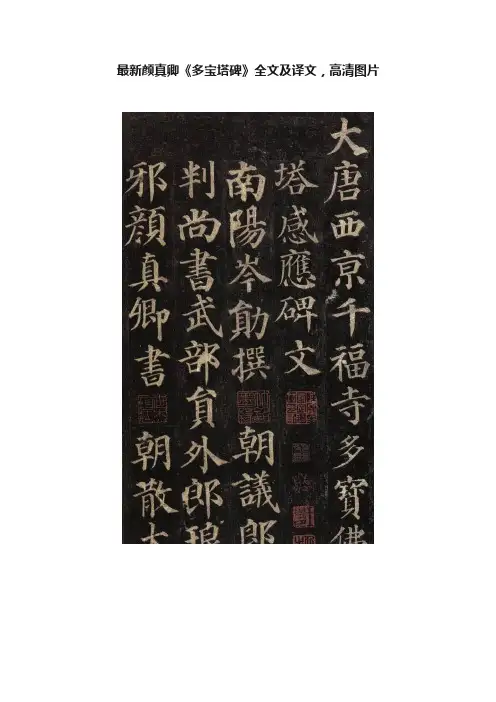 最新颜真卿《多宝塔碑》全文及译文，高清图片
大唐西京千福寺多寶佛
塔感應碑文
南陽岑勛撰 朝議郎
判尚書武部員外郎琅
邪顏真卿書 朝散大